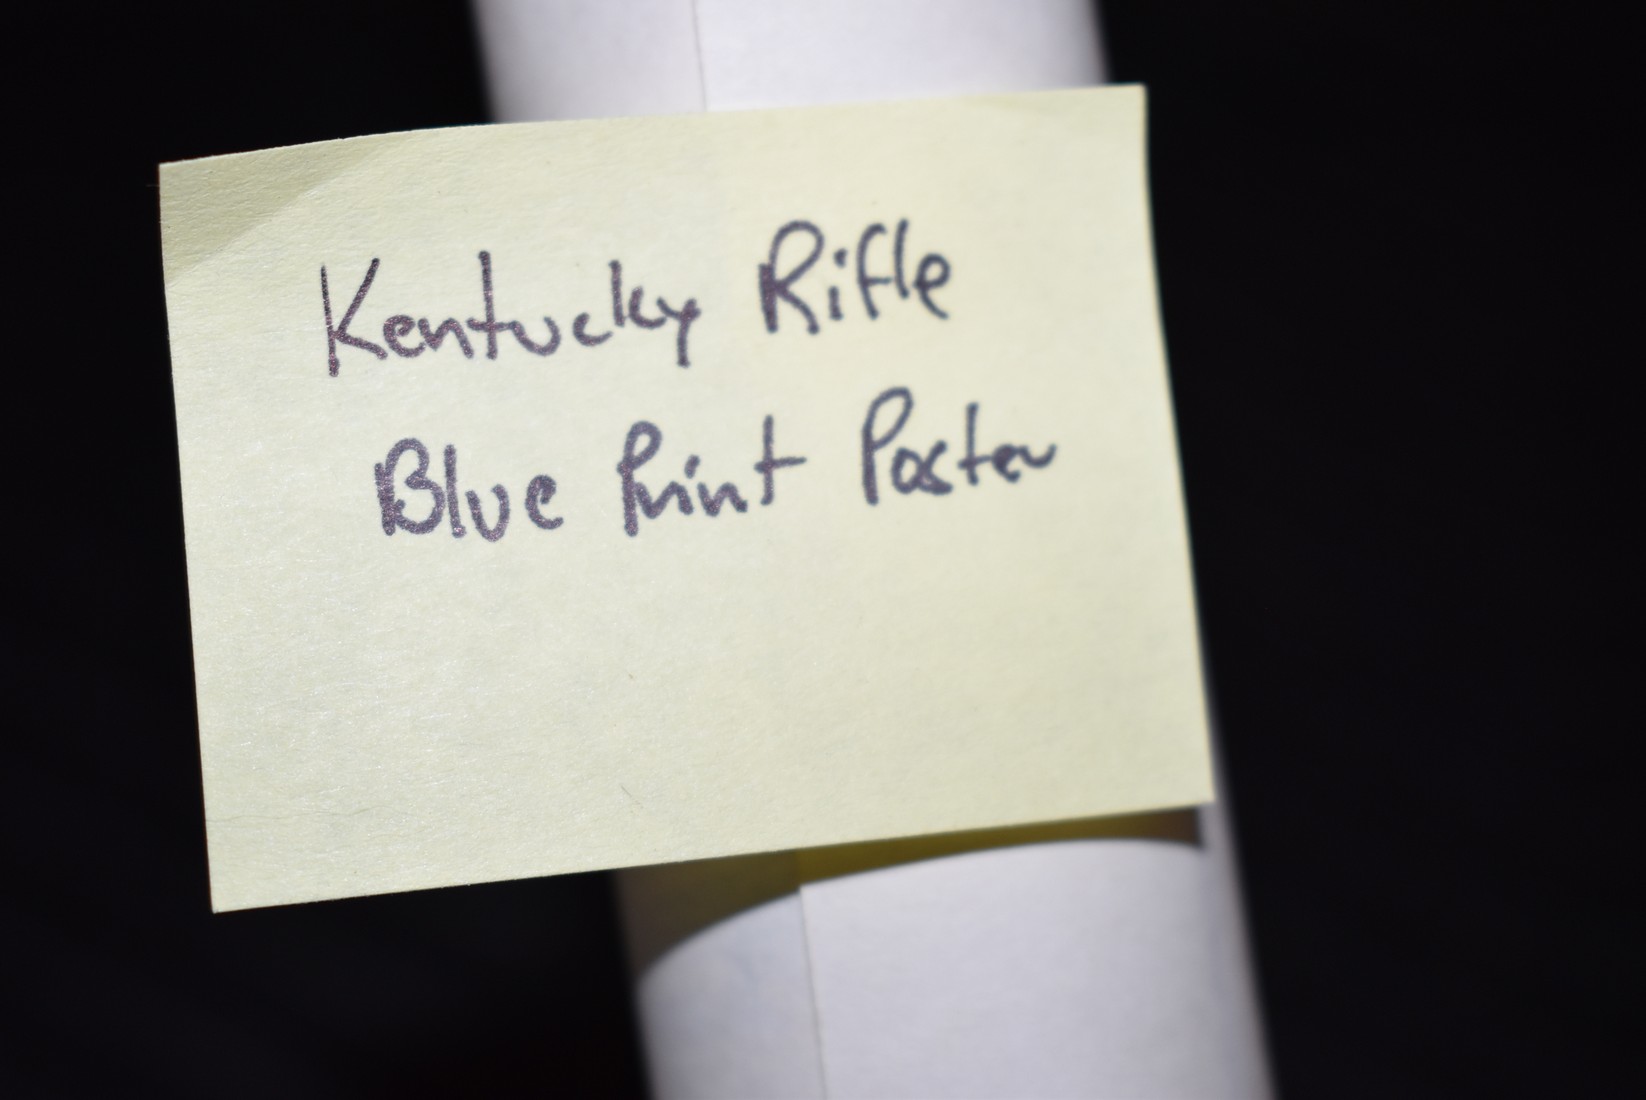 Kentucky Rifle
Blue Print Poster